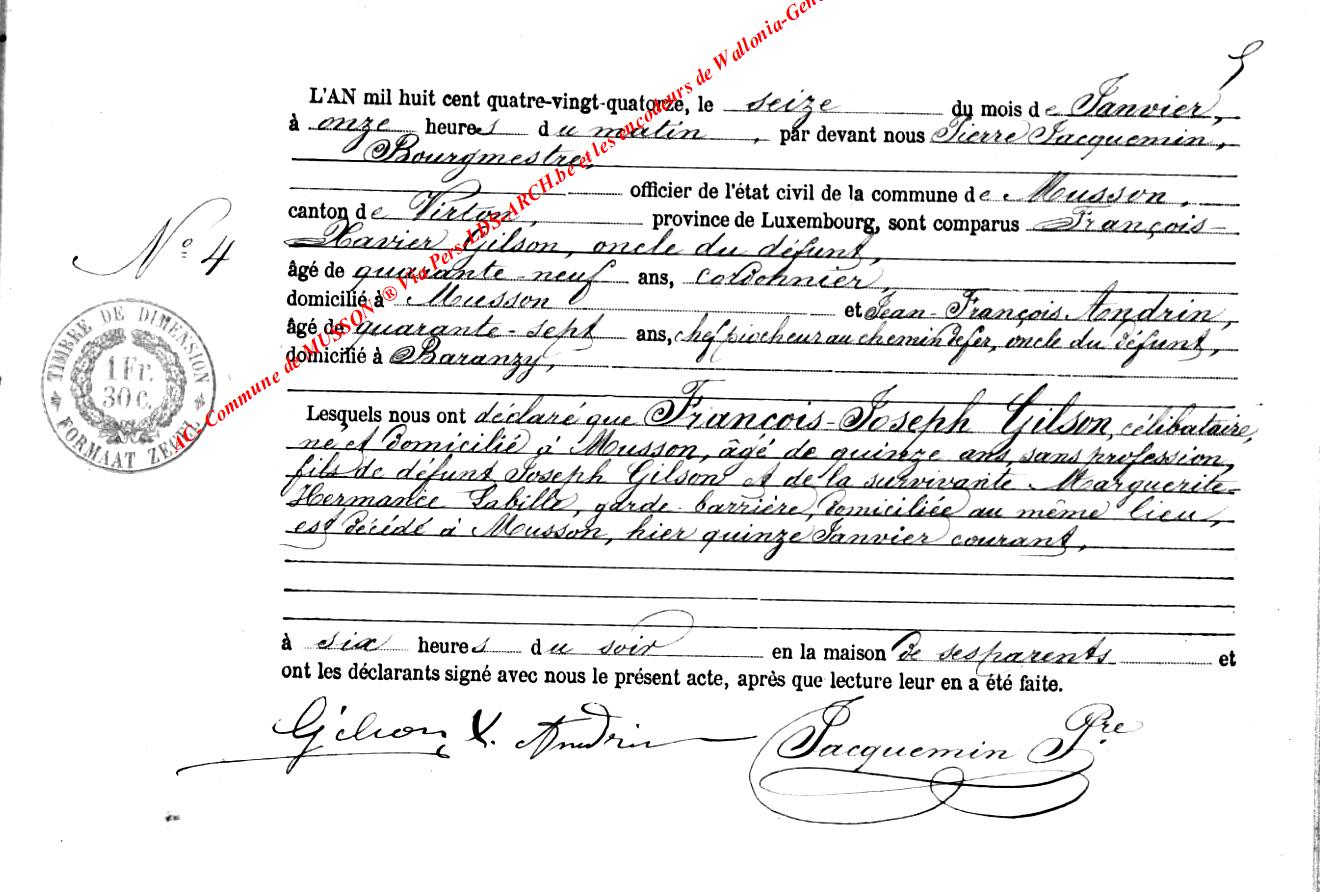 5
L'AN mil huit cent quatre-vingt-quatorze, le seize du mois de Janvier,
à onze heures du matin, par devant nous Pierre Jacquemin,
Bourgmestre,
officier de l'état civil de la commune de Musson,
canton de Virton, province de Luxembourg, sont comparus François-
Xavier Gilson, oncle du défunt,
âgé de quarante-neuf ans, cordonnier,
domicilié à Musson et Jean-François Andrin,
âgé de quarante-sept ans, chef piocheur au chemin de fer, oncle du défunt,
domicilié à Baranzy,
Lesquels nous ont déclaré que François-Joseph Gilson, célibataire,
né et domicilié à Musson, âgé de quinze ans, sans profession,
fils de défunt Joseph Gilson et de la survivante Marguerite-
Hermance Labille, garde-barrière, domiciliée au même lieu,
est décédé à Musson, hier quinze Janvier courant,
à six heures du soir en la maison de ses parents et
ont les déclarants signé avec nous le présent acte, après que lecture leur en a été faite.
Gilson X. Andrin Jacquemin Pre
No 4
TIMBRE DE DIMENSION
1 Fr.
30 C.
FORMAAT ZEGEL
AC. Commune de MUSSON ® Via Pers LDS-ARCH.be et les encodeurs de Wallonia-Gen